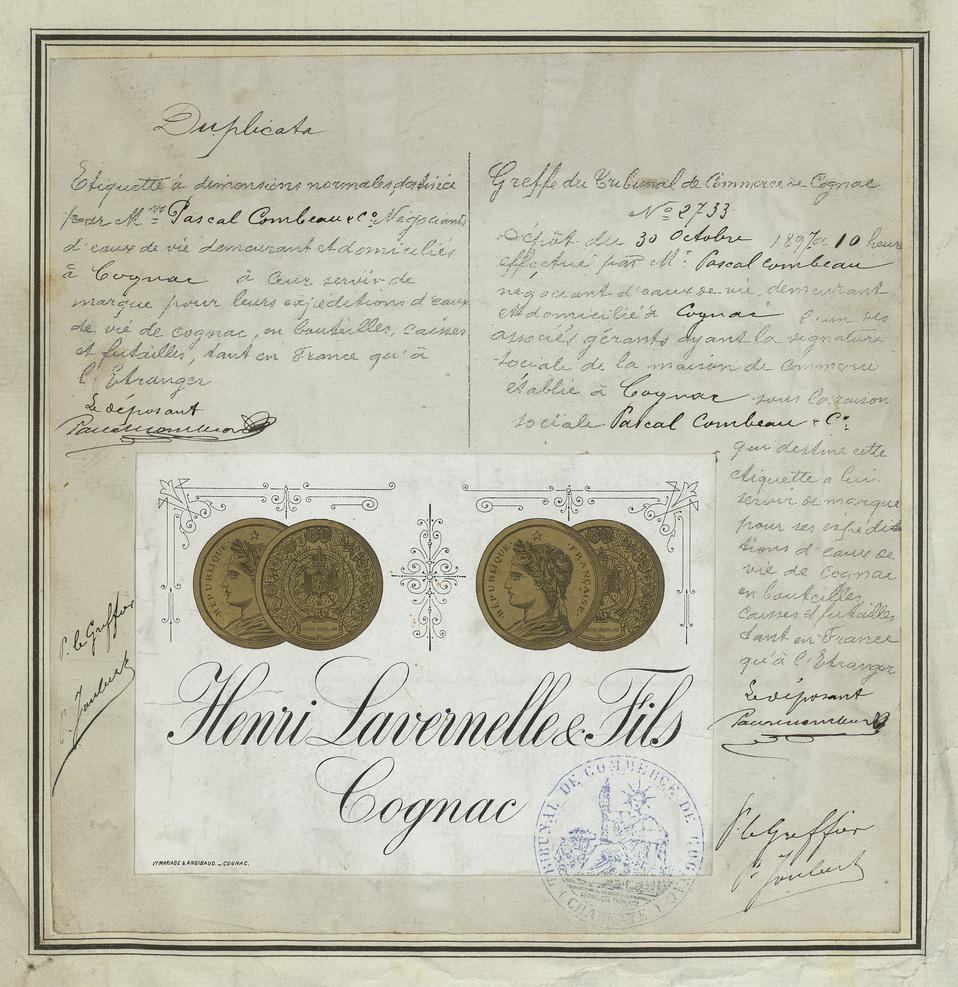 Duplicata
Etiquette à dimensions normales destinée
par M.rs Pascal Combeau & Cº Négociants
d'eaux de vie demeurant et domiciliés
à Cognac à leur servir de
marque pour leurs expéditions d'eaux
de vie de cognac, en bouteilles, caisses
et futailles, tant en France qu'à
l'Etranger
Le déposant
Greffe du Tribunal de Commerce de Cognac
Nº 2733
Dépôt du 30 Octobre 1897 à 10 heures
effectué par Mr Pascal Combeau
négociant d'eaux de vie, demeurant
et domicilié à Cognac l'un des
associés gérants ayant la signature
sociale de la maison de commerce
établie à Cognac sous la raison
sociale Pascal Combeau & Cº
qui destine cette
étiquette à lui
servir de marque
pour ses expédi
tions d'eaux de
vie de Cognac
en bouteilles,
caisses et futailles
tant en France
qu'à l'Etranger
Le déposant
P. le Greffier
P. Joubert
P. le Greffier
P. Joubert
RÉPUBLIQUE
RÉPUBLIQUE FRANÇAISE
Henri Lavernelle & Fils
Cognac
Vve MARIAGE & ANGIBAUD. _ COGNAC.
TRIBUNAL DE COMMERCE DE COGNAC
(CHARENTE)